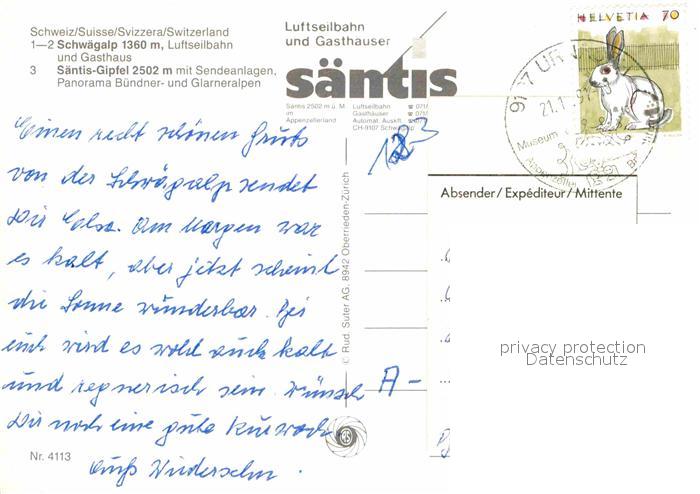 Schweiz/Suisse/Svizzera/Switzerland
1—2 Schwägalp 1360 m, Luftseilbahn
und Gasthaus
3 Säntis-Gipfel 2502 m mit Sendeanlagen,
Panorama Bündner- und Glarneralpen
Luftseilbahn
und Gasthäuser
säntis
Säntis 2502 m ü. M.
im
Appenzellerland
Luftseilbahn ☎ 071/
Gasthäuser ☎ 071/
Automat. Auskft. ☎ 071/
CH-9107 Schwägalp
HELVETIA 70
9107 UR
21.1
Museum
Appenzeller
123
Einen recht schönen Gruss
von der Schwägalp sendet
Dir Elsa. Am Morgen war
es kalt, aber jetzt scheint
die Sonne wunderbar. Bei
euch wird es wohl auch kalt
und regnerisch sein. Wünsch
Dir noch eine gute Kurwoche
Auf Wiedersehn.
Nr. 4113
© Rud. Suter AG, 8942 Oberrieden-Zürich
Absender/Expéditeur/Mittente
A-
privacy protection
Datenschutz